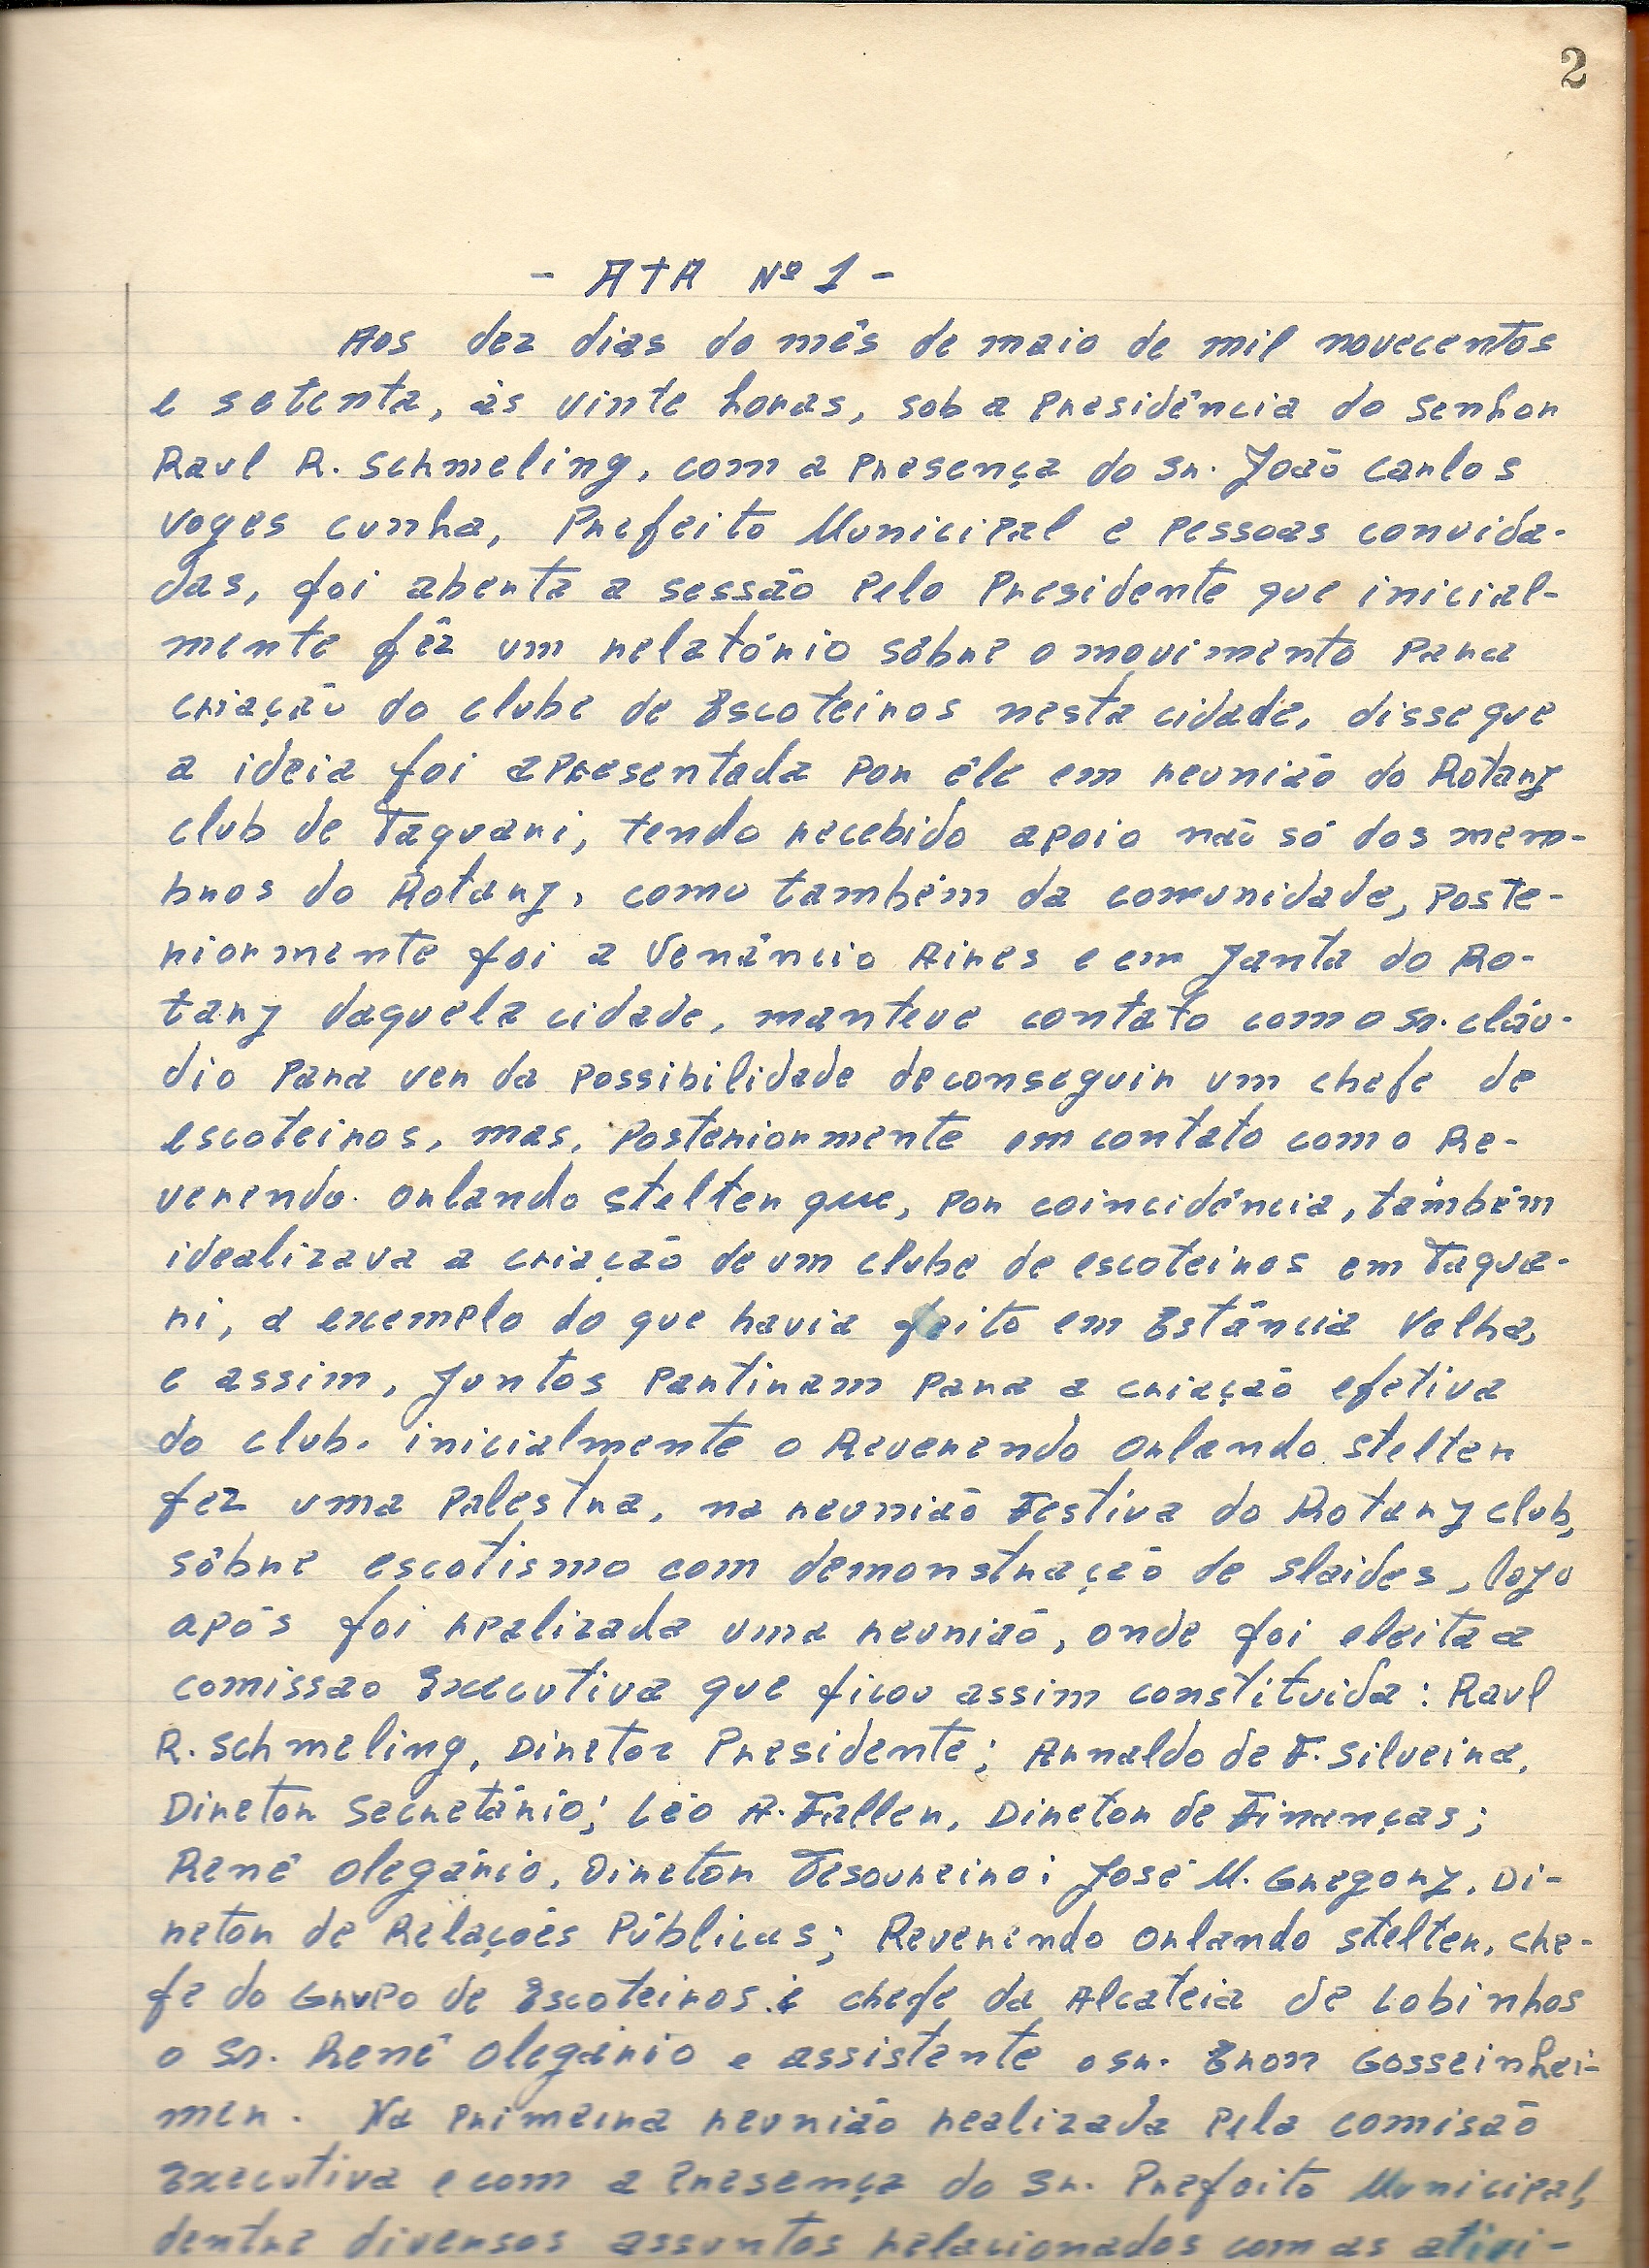 2
- ATA Nº 1 -
Aos dez dias do mês de maio de mil novecentos
e setenta, às vinte horas, sob a Presidência do Senhor
Raul R. Schmeling, com a presença do Sr. João Carlos
Voges Cunha, Prefeito Municipal e pessoas convida-
das, foi aberta a sessão pelo Presidente que inicial-
mente fêz um relatório sôbre o movimento para
criação do clube de Escoteiros nesta cidade, disse que
a ideia foi apresentada por êle em reunião do Rotary
club de Taquari, tendo recebido apoio não só dos mem-
bros do Rotary, como também da comunidade, Poste-
riormente foi a Venâncio Aires e em Janta do Ro-
tary daquela cidade, manteve contato com o Sr. Cláu-
dio para ver da possibilidade de conseguir um chefe de
escoteiros, mas, posteriormente em contato com o Re-
verendo Orlando Stelter que, por coincidência, também
idealizava a criação de um clube de escoteiros em Taqua-
ri, a exemplo do que havia feito em Estância Velha,
e assim, juntos partiram para a criação efetiva
do club. inicialmente o Reverendo Orlando Stelter
fez uma palestra, na reunião Festiva do Rotary club,
sôbre escotismo com demonstração de slaides, logo
após foi realizada uma reunião, onde foi eleita a
comissao Executiva que ficou assim constituida: Raul
R. Schmeling, Diretor Presidente; Arnaldo de F. Silveira,
Diretor Secretário; Léo A. Faller, Diretor de Finanças;
René Olegário, Diretor Tesoureiro; José M. Gregory, Di-
retor de Relações Públicas; Reverendo Orlando Stelter, che-
fe do Grupo de Escoteiros e chefe da Alcateia de Lobinhos
o Sr. René Olegário e assistente o Sr. Eron Gosseinhei-
mer. Na primeira reunião realizada pela comisão
Executiva e com a presença do Sr. Prefeito Municipal,
dentre diversos assuntos relacionados com as ativi-